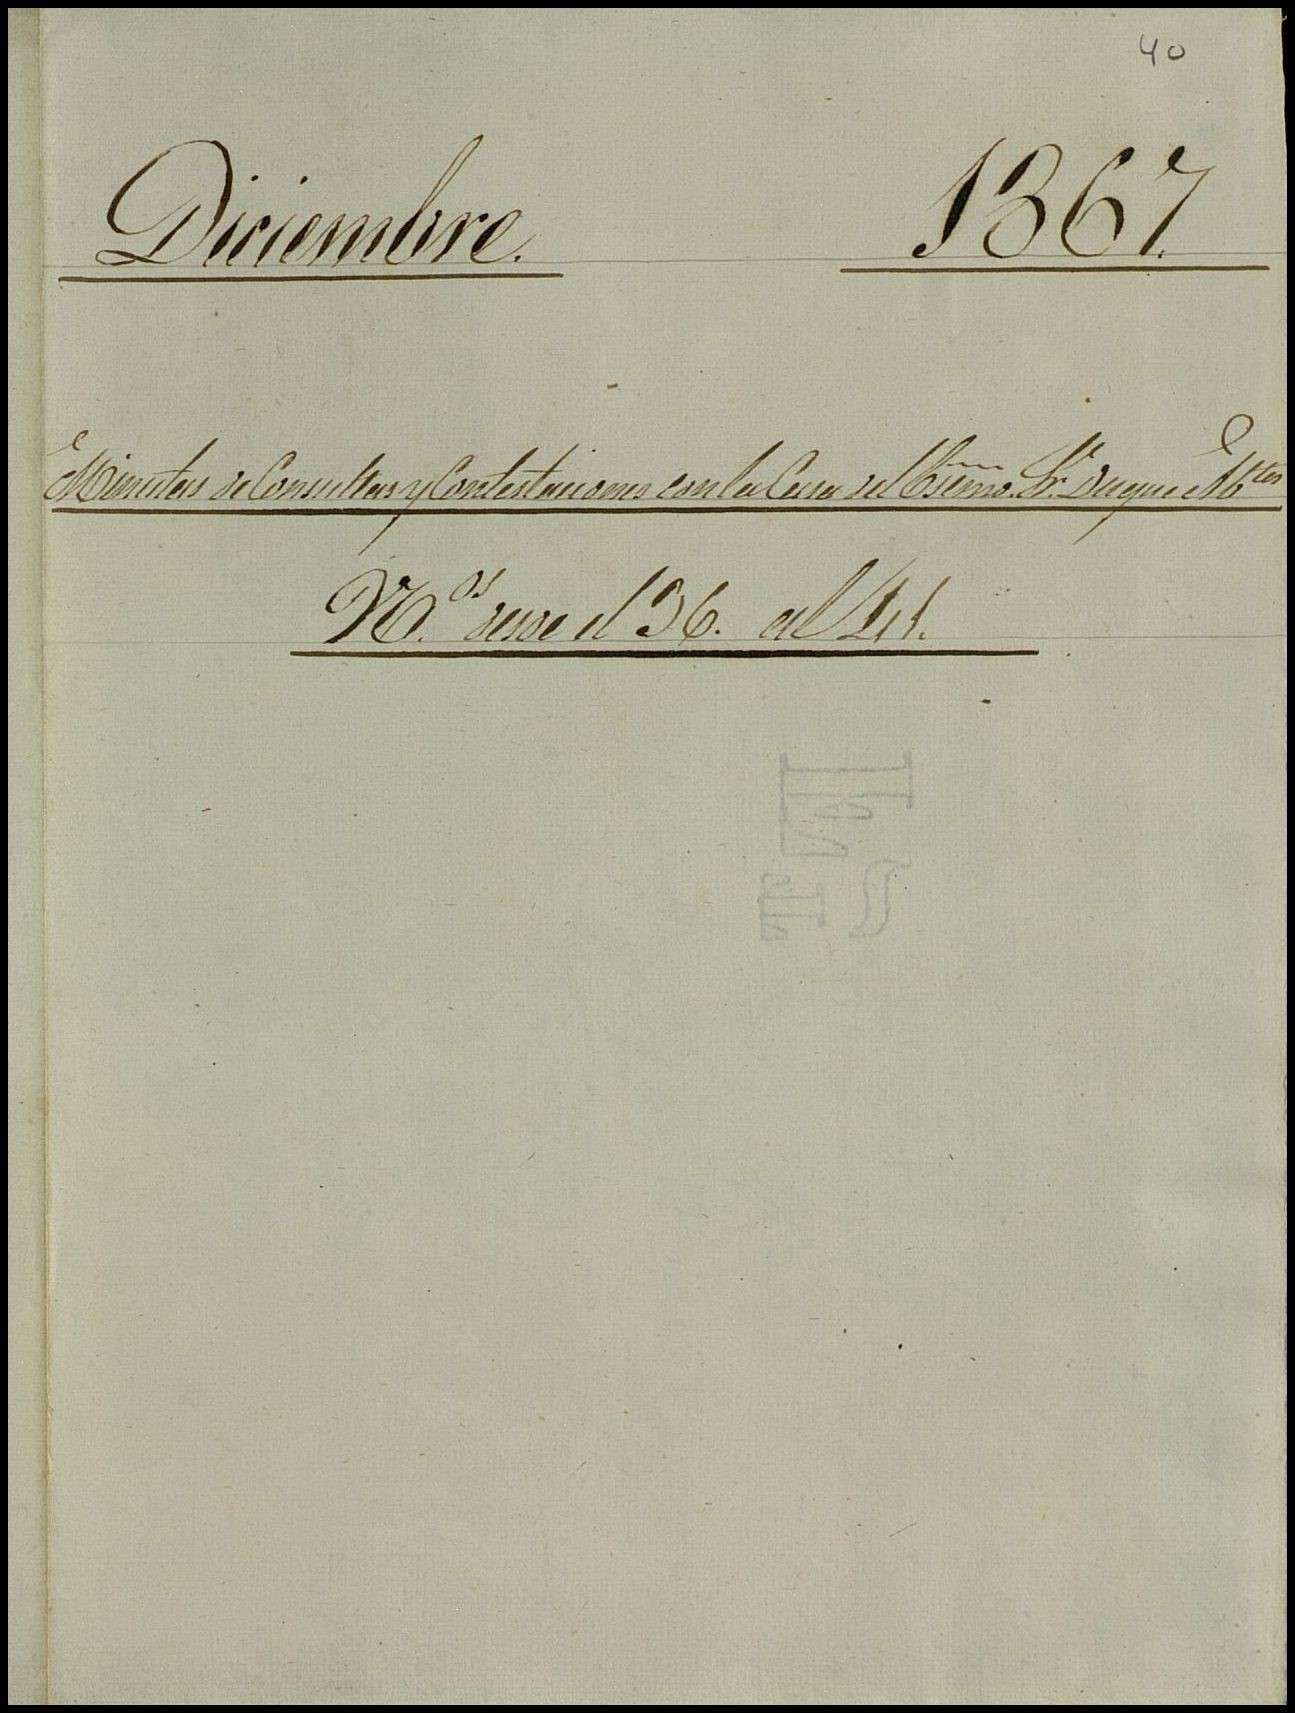 40
Diciembre. 1867.
Minutas de Consultas y Contestaciones con la Casa del Exmo. Sr. Duque
N.os desde el 36. al 41.